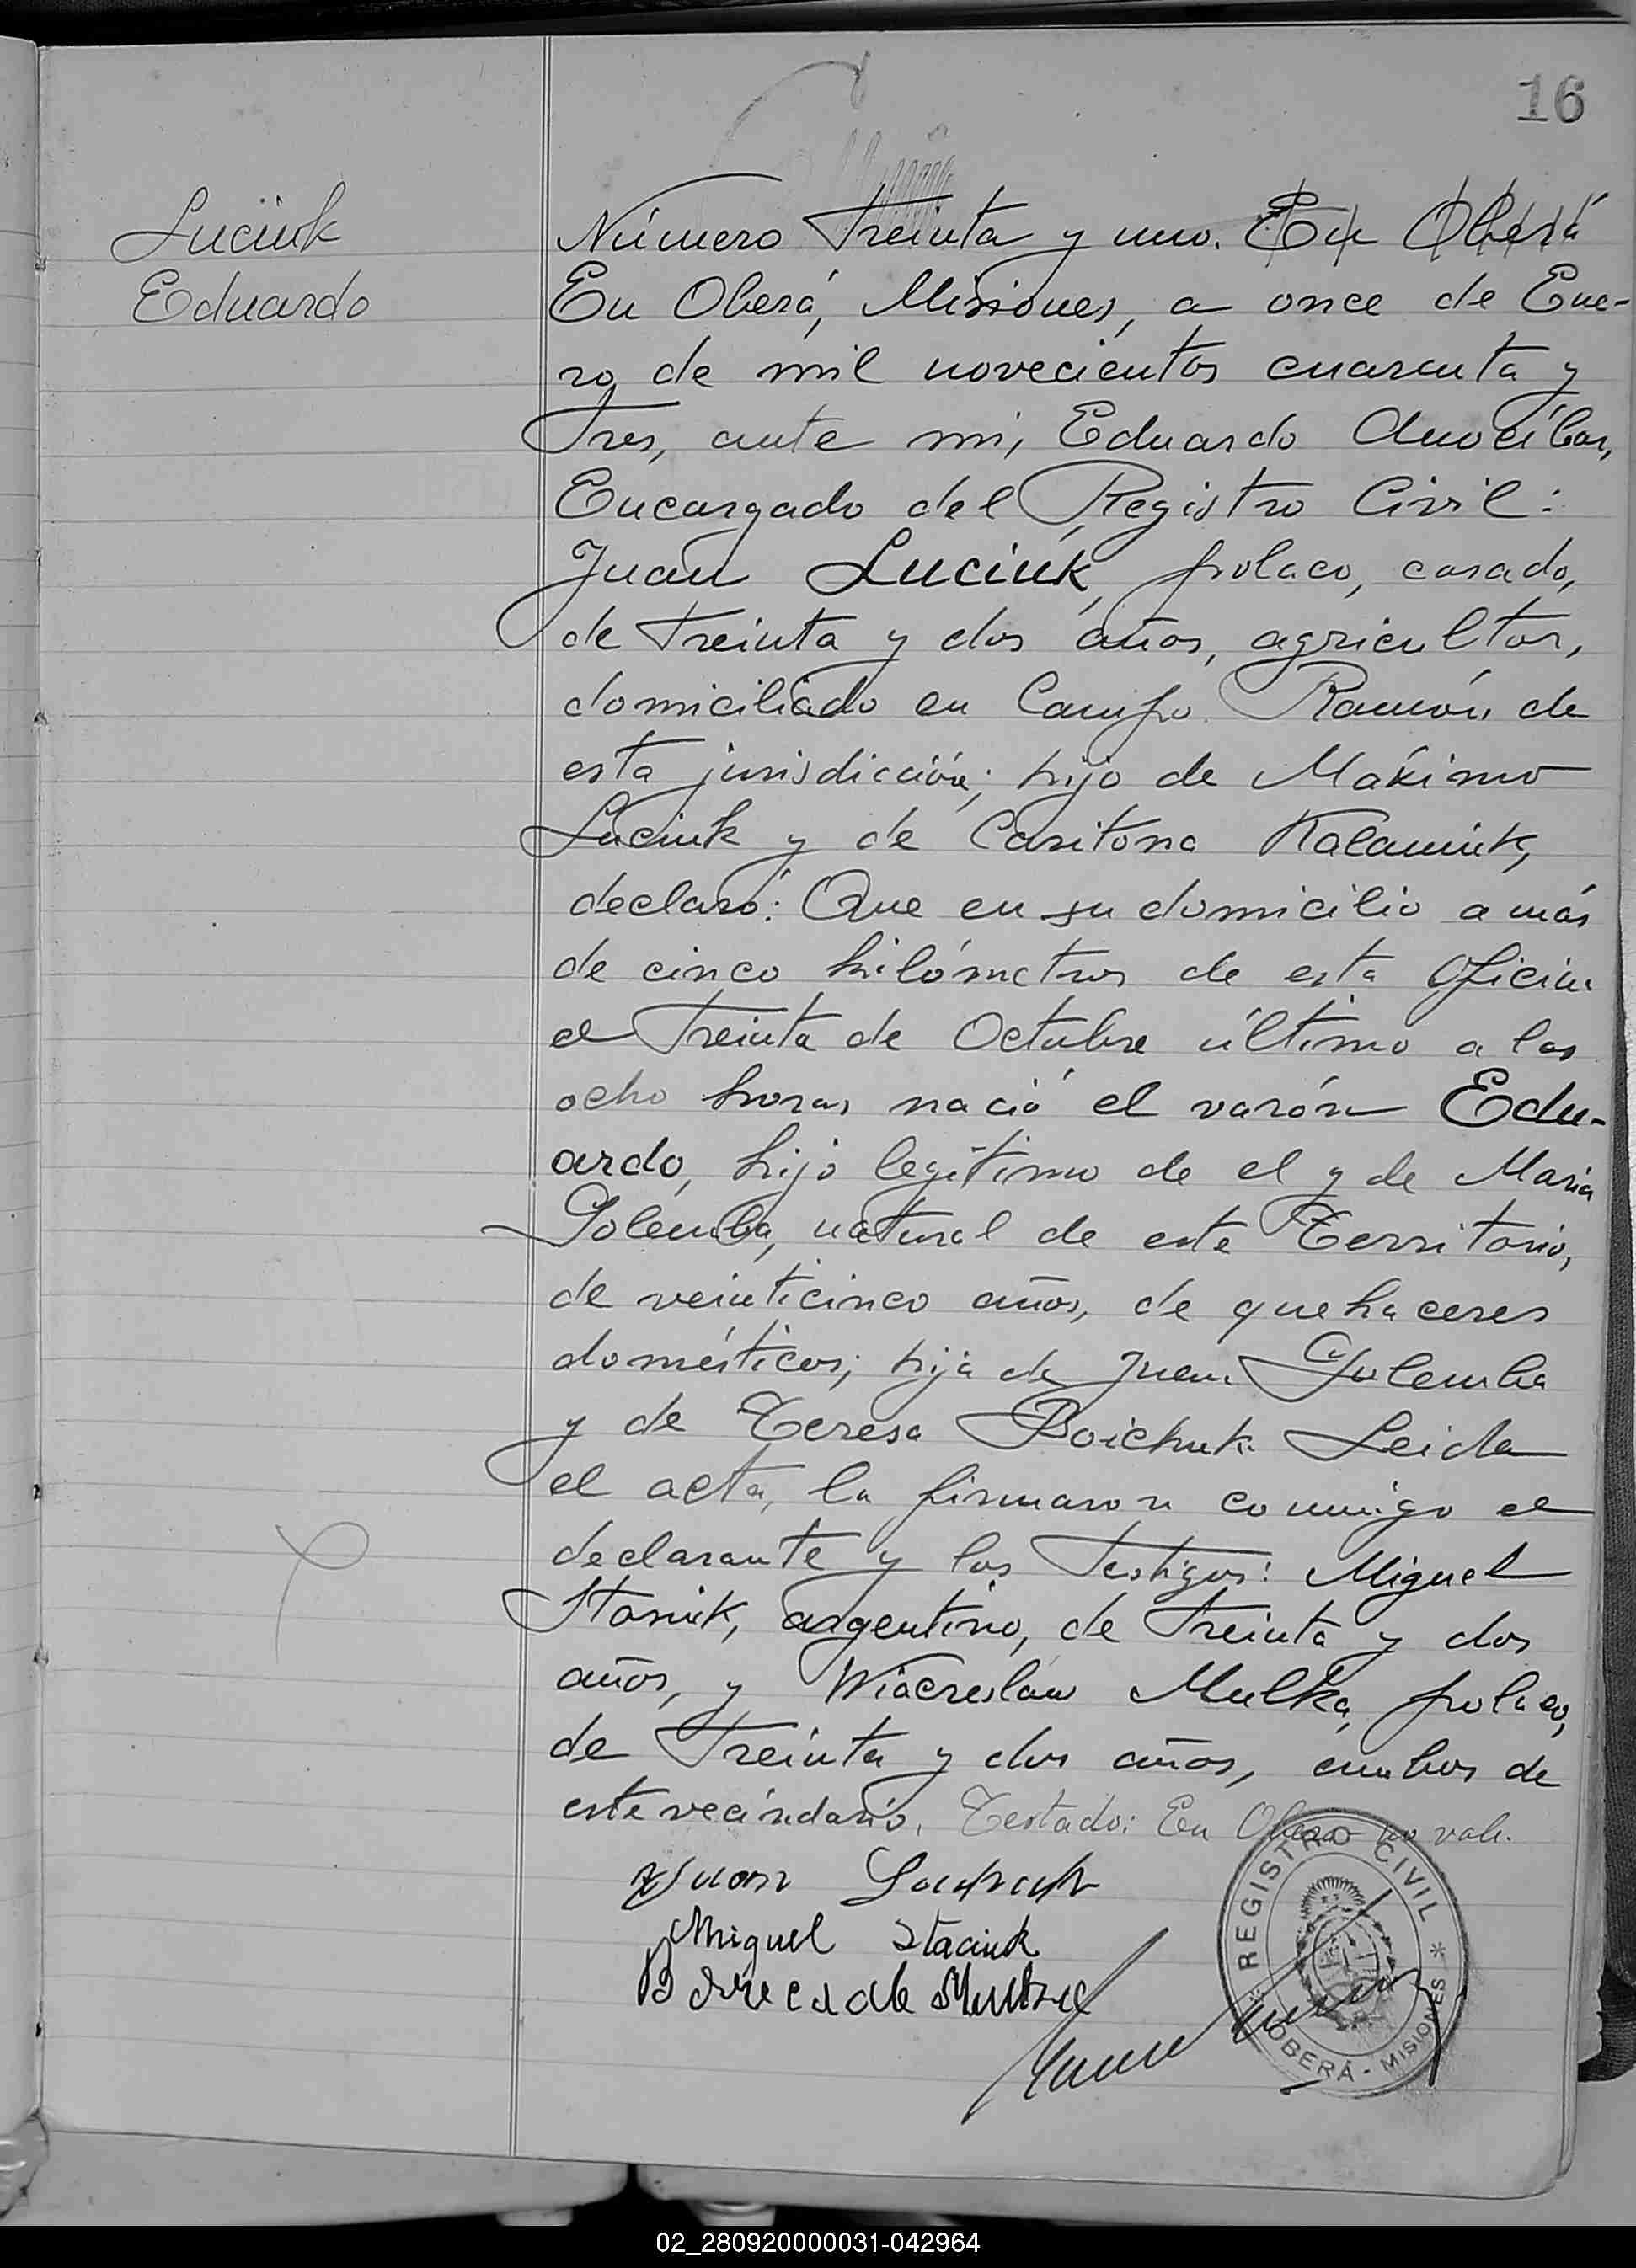 16
Luciuk
Eduardo
Número treinta y uno. En Oberá
En Oberá, Misiones, a once de Ene-
ro de mil novecientos cuarenta y
tres, ante mi, Eduardo
Encargado del Registro Civil:
Juan Luciuk, polaco, casado,
de treinta y dos años, agricultor,
domiciliado en Campo Ramón de
esta jurisdicción; hijo de Makimo
Luciuk y de Caritona Kalamiuk,
declaró: Que en su domicilio a más
de cinco kilómetros de esta Oficina
el treinta de Octubre último a las
ocho horas nació el varón Edu-
ardo, hijo legítimo de el y de Maria
Golemba, natural de este Territorio,
de veinticinco años, de quehaceres
domésticos; hija de Juan Golemba
y de Teresa Boichuk. Leida
el acta, la firmaron conmigo el
declarante y los testigos: Miguel
Staniuk, argentino, de treinta y dos
años, y Wiaczeslaw Mulka, polaco,
de treinta y dos años, ambos de
este vecindario. Testado: En Oberá no vale.
Juan
Miguel Staciuk
REGISTRO CIVIL
OBERÁ - MISIONES
02_280920000031-042964